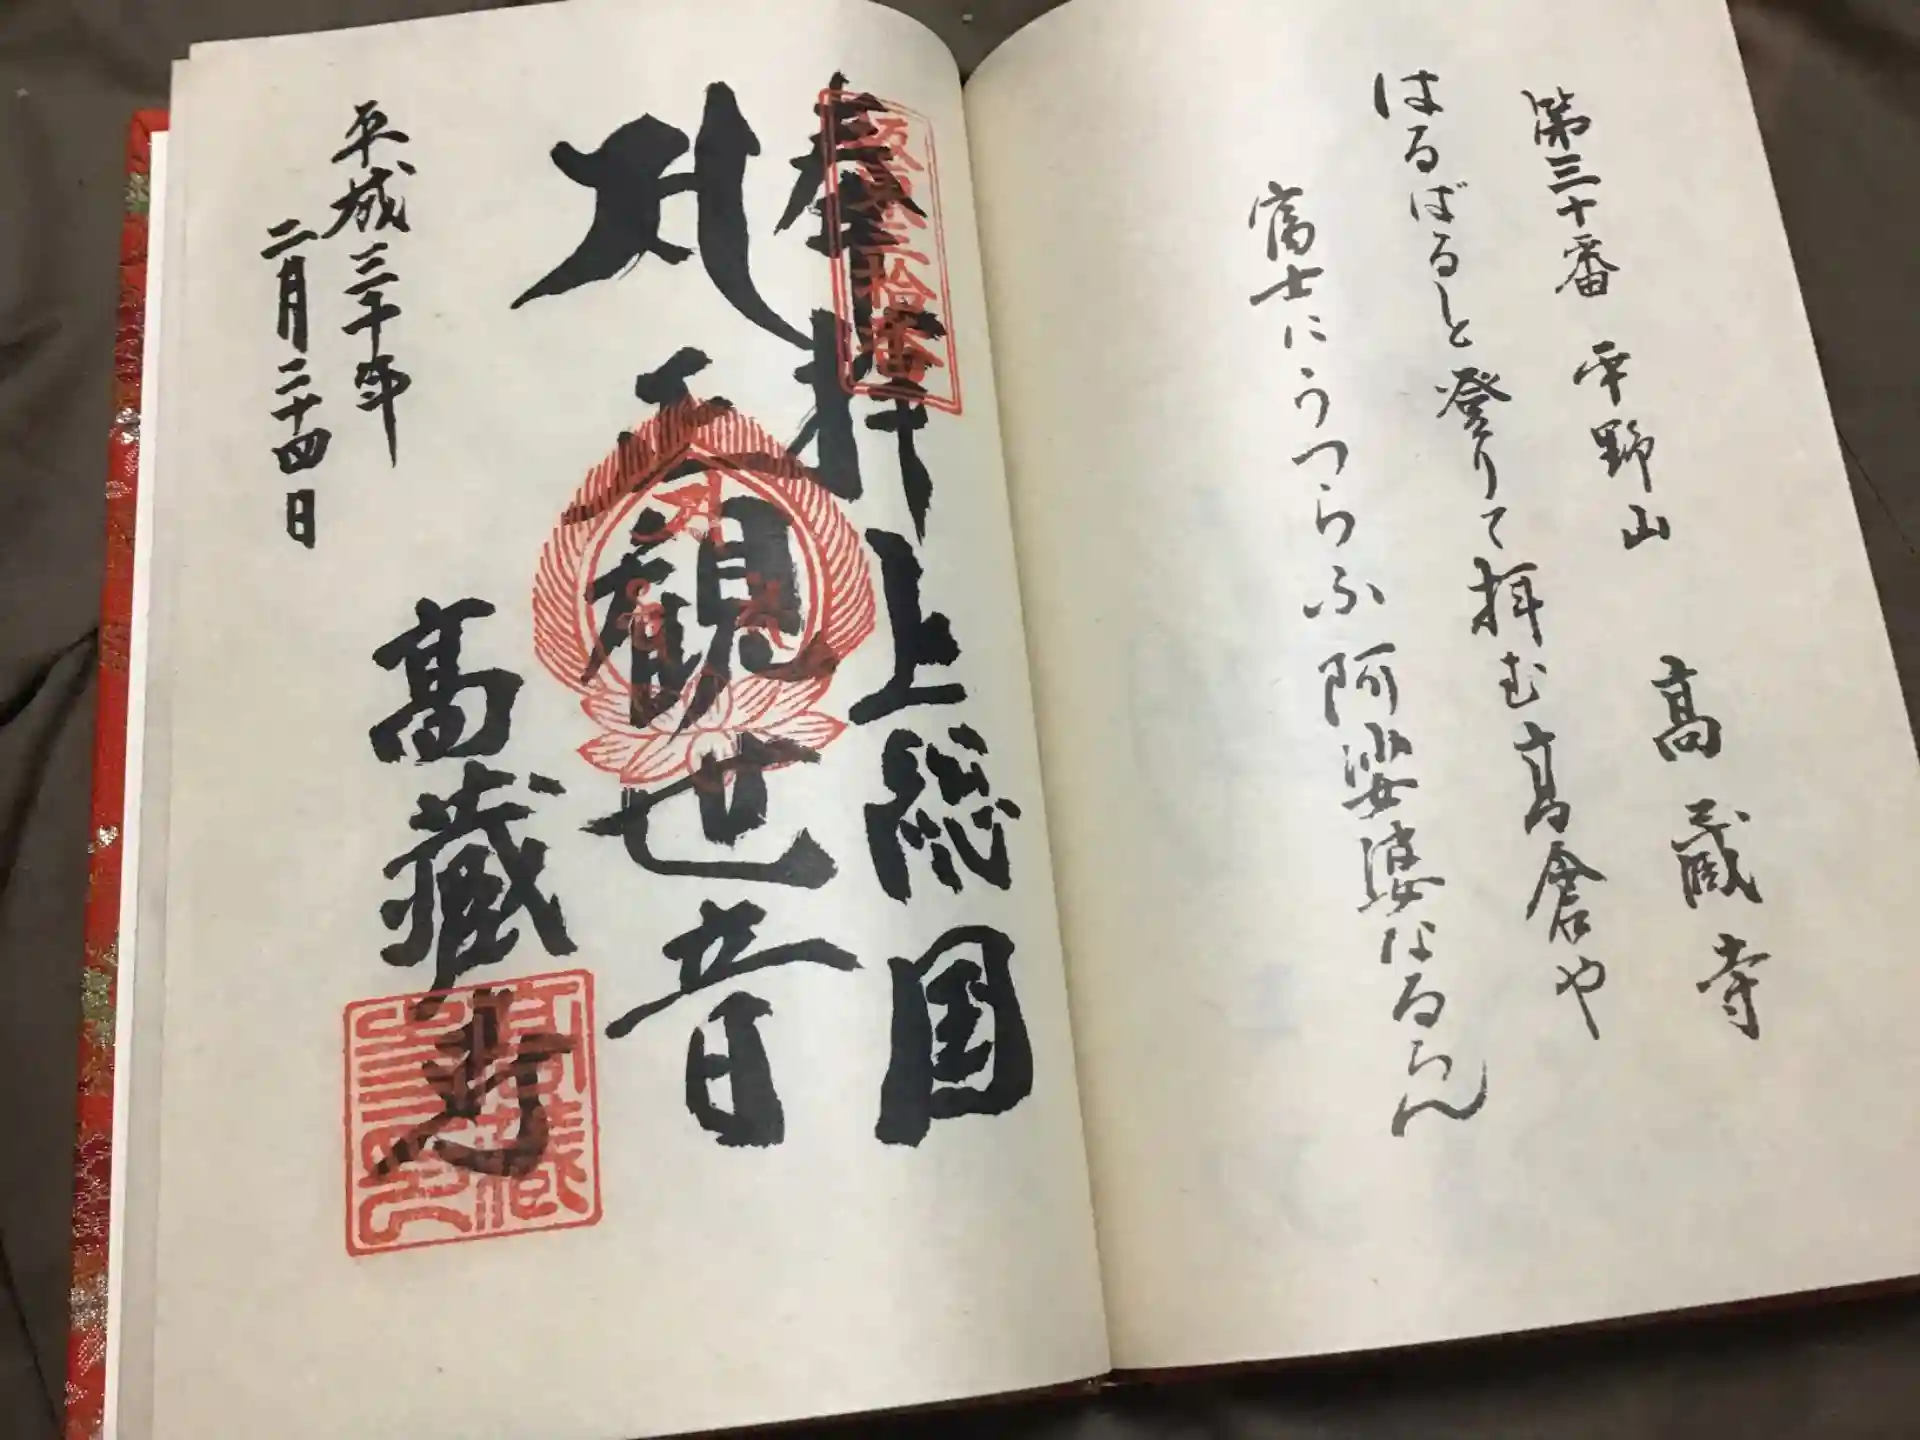 第三十番 平野山 高蔵寺
はるばると登りて拝む高倉や
富士にうつらふ阿娑婆なるらん
奉拝 上総国
坂東三拾番
正観世音
高蔵寺
平成三十年
二月二十四日